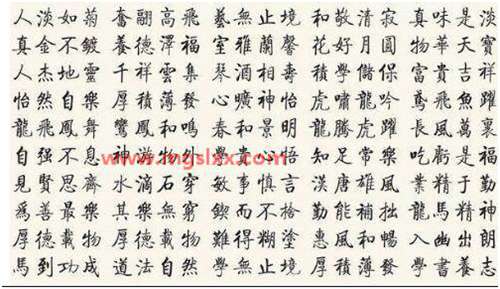 人淡如菊奮翮高飛藝無止境和敬清寂真味是淡
真金不鍍養德澤福室雅蘭馨花好月圓物華天寶
人杰地靈千祥雲集琴酒相壽積學儲保富貴吉祥
怡然自樂厚積薄發心曠神怡虎嘯龍吟鳶飛魚躍
龍飛鳳舞鸞鳳和鳴春和景明龍騰虎躍長風萬裏
自强不息神游物外學貴心悟知足常樂吃虧是福
www.mgslxx.com
見賢思齊水滴石穿敏事慎言漢唐雄風業精于勤
爲善最樂其樂無窮鍥而不捨勤能補拙龍馬精神
厚德載物厚德載物難得糊塗惠風和暢入幽出朗
馬到功成道法自然學無止境厚積薄發學書養志